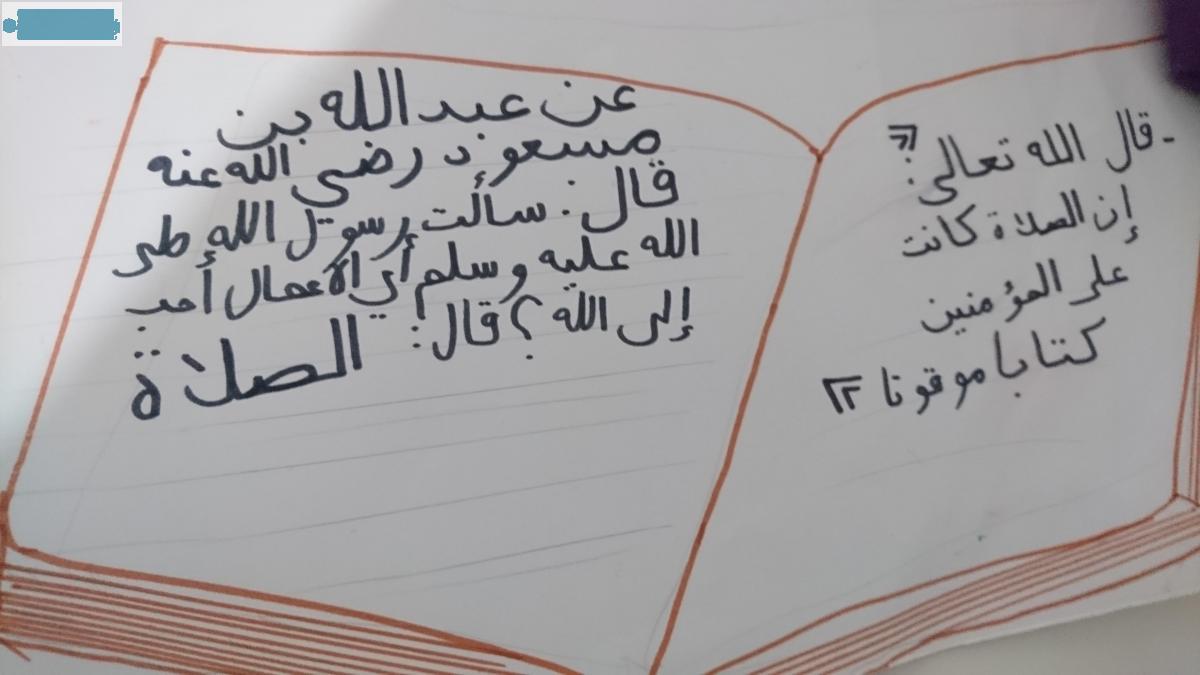 - قال الله تعالى: «
إن الصلاة كانت
على المؤمنين
كتابا موقوتا »
عن عبد الله بن
مسعود رضي الله عنه
قال: سألت رسول الله صلى
الله عليه وسلم أي الأعمال أحب
إلى الله؟ قال:
الصلاة